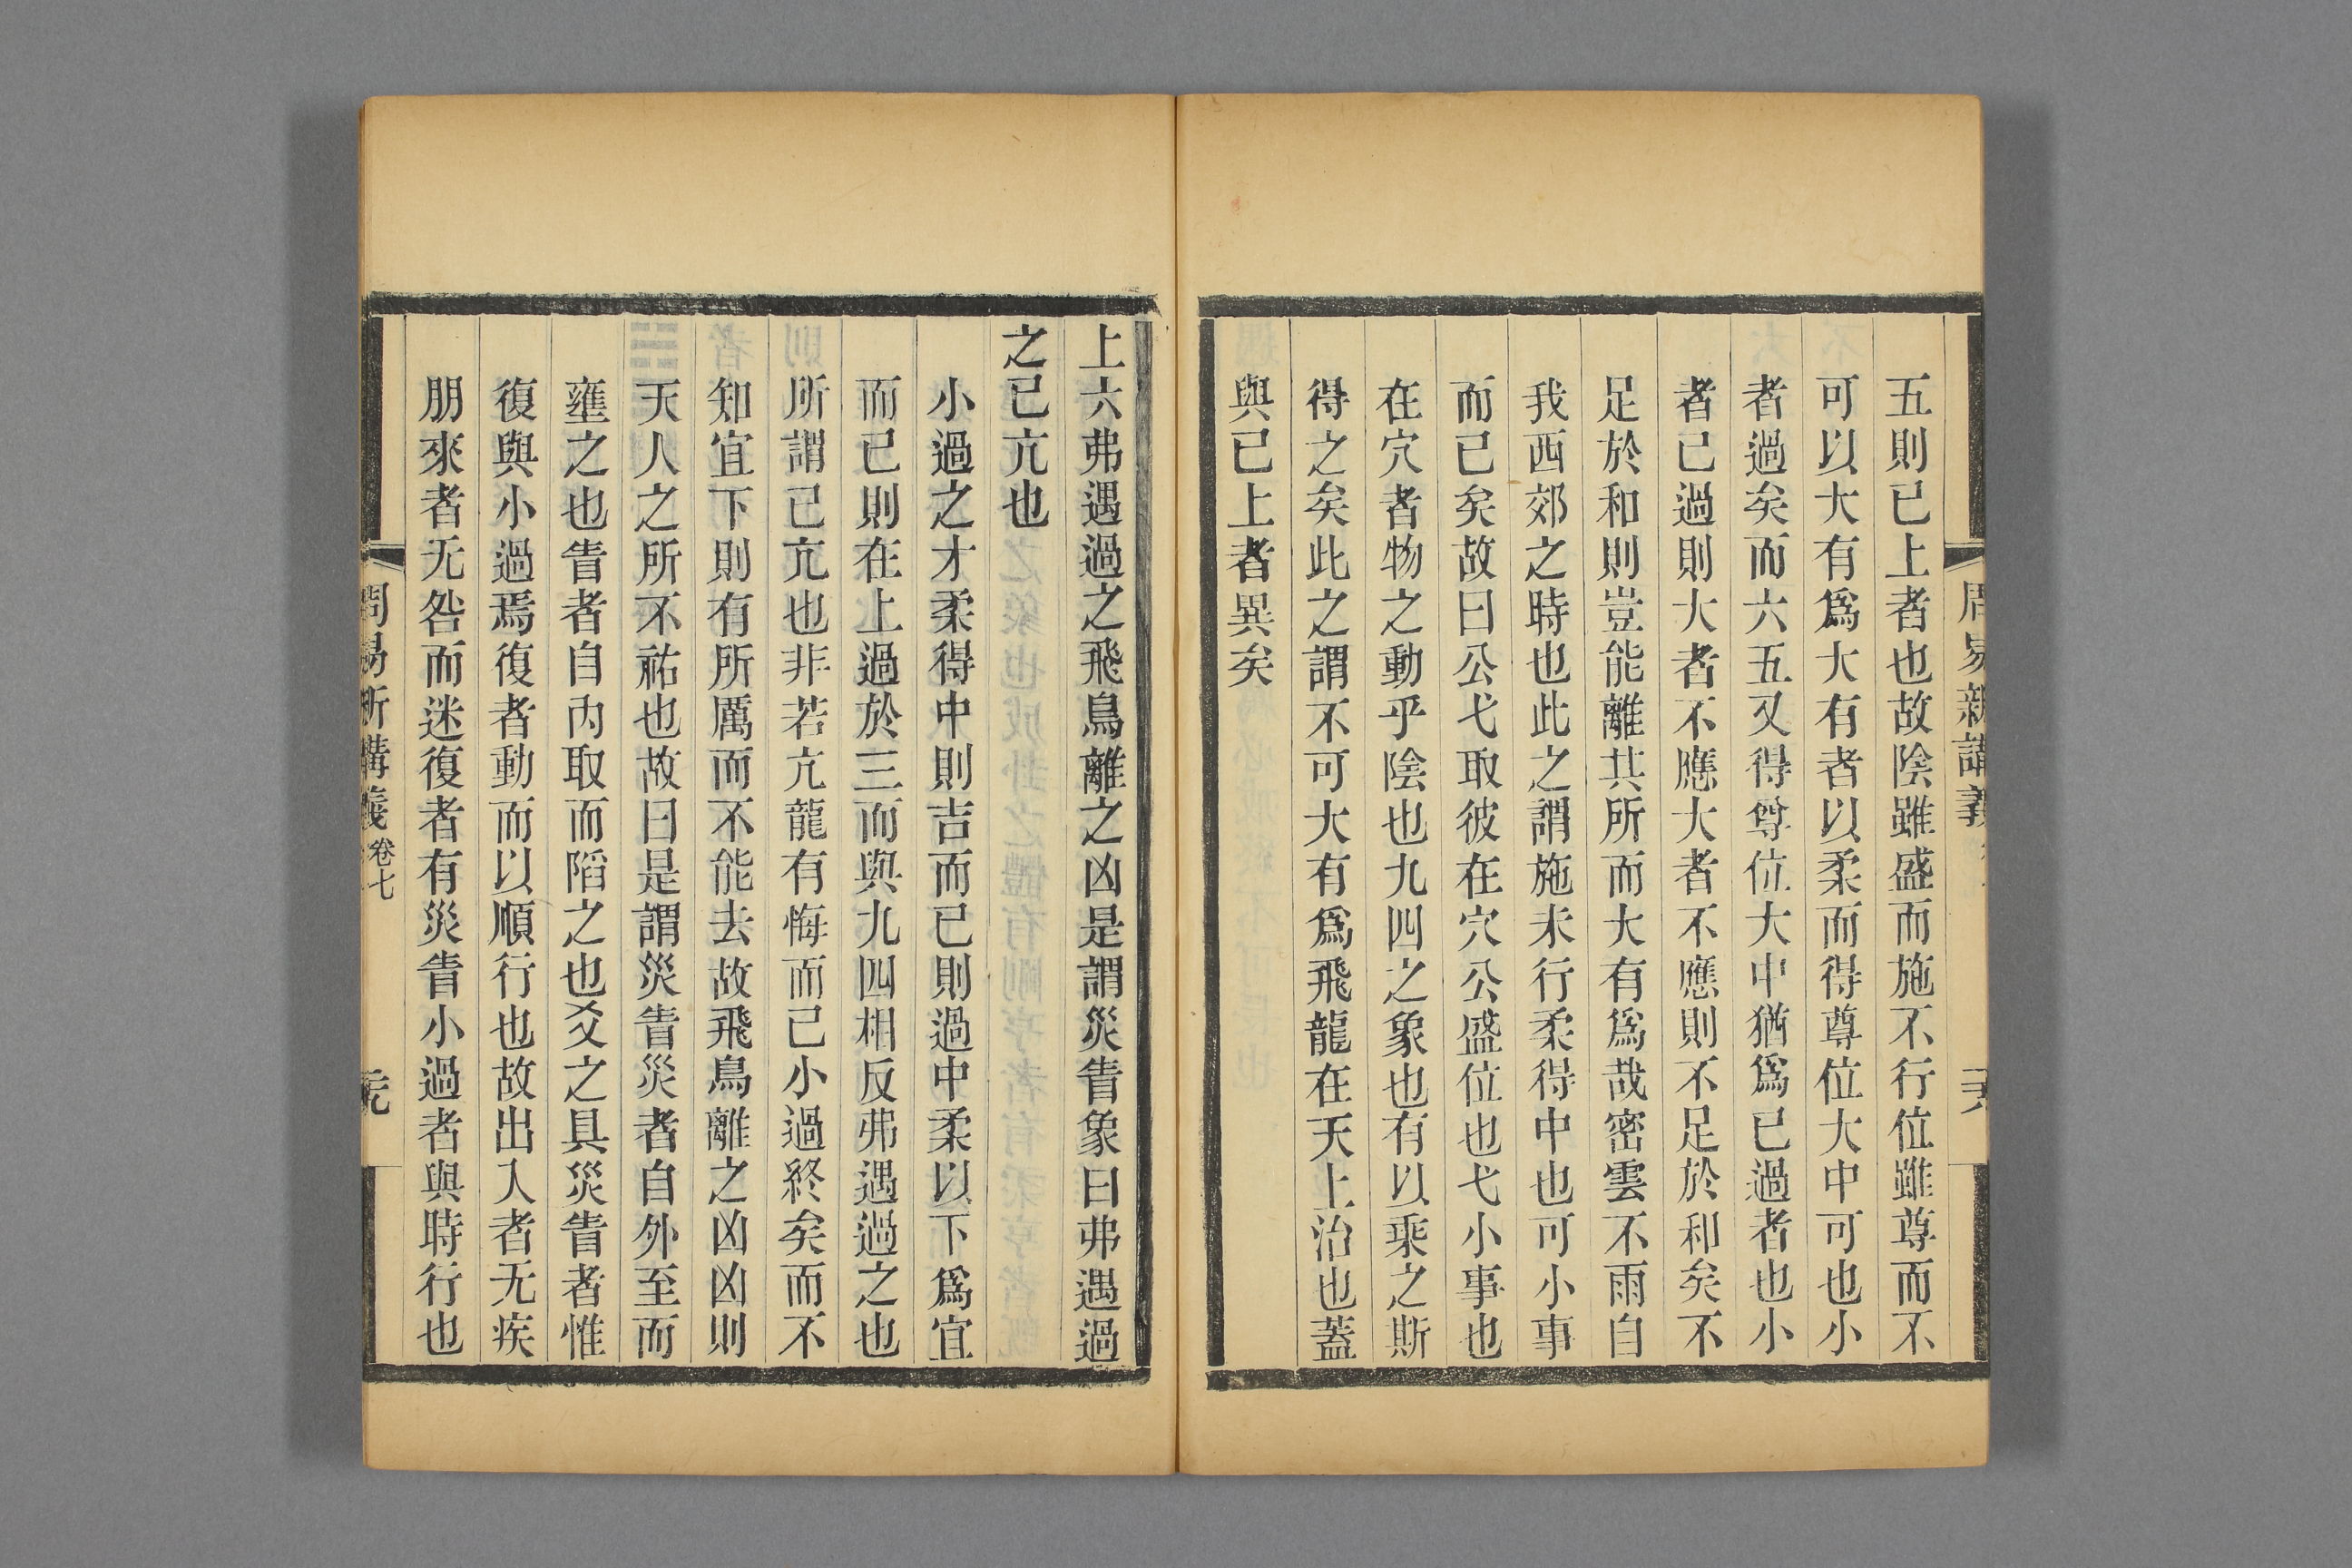 周易新講義
五則已上者也故陰雖盛而施不行位雖尊而不
可以大有爲大有者以柔而得尊位大中可也小
者過矣而六五又得尊位大中猶爲已過者也小
者已過則大者不應大者不應則不足於和矣不
足於和則豈能離其所而大有爲哉密雲不雨自
我西郊之時也此之謂施未行柔得中也可小事
而已矣故曰公弋取彼在穴公盛位也弋小事也
在穴者物之動乎陰也九四之象也有以乘之斯
得之矣此之謂不可大有爲飛龍在天上治也蓋
與已上者異矣
上六弗遇過之飛鳥離之凶是謂災眚象曰弗遇過
之已亢也
小過之才柔得中則吉而已則過中柔以下爲宜
而已則在上過於三而與九四相反弗遇過之也
所謂已亢也非若亢龍有悔而已小過終矣而不
知宜下則有所厲而不能去故飛鳥離之凶凶則
天人之所不祐也故曰是謂災眚災者自外至而
壅之也眚者自內取而陷之也爻之具災眚者惟
復與小過焉復者動而以順行也故出入者无疾
朋來者无咎而迷復者有災眚小過者與時行也
周易新講義 卷七